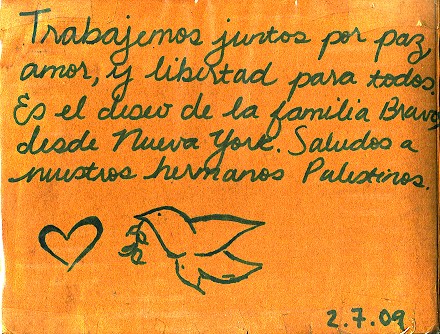 Trabajemos juntos por paz,
amor, y libertad para todos.
Es el deseo de la familia Bravo,
desde Nueva York. Saludos a
nuestros hermanos Palestinos.
2.7.09